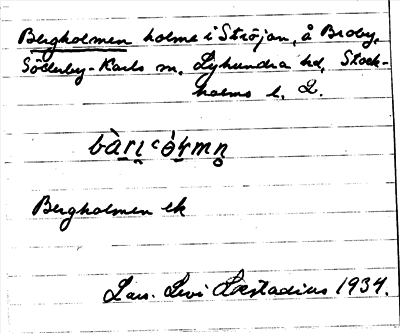 Bergholmen holme i Ströjan, å Broby,
Söderby-Karls sn, Lyhundra hd, Stock-
holms l. 2.
Bergholmen ek
Lars. Levi Læstadius 1934.